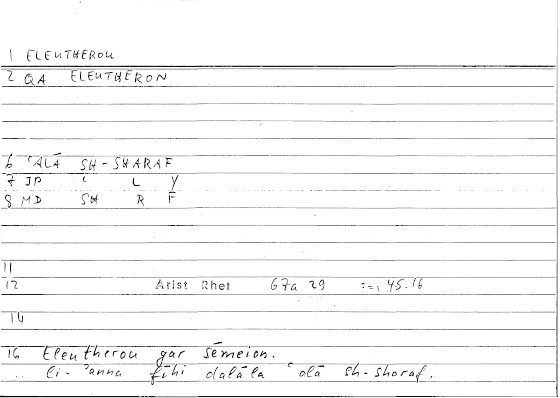 1 ELEUTHEROU
2 QA ELEUTHERON
6 ʿALĀ SH-SHARAF
7 JP ʿ L Y
8 MD SH R F
11
12 Arist Rhet 67a 29 :=, 45.16
14
16 Eleutherou gar sēmeion.
.. li-ʾanna fīhi dalāla ʿalā sh-sharaf.